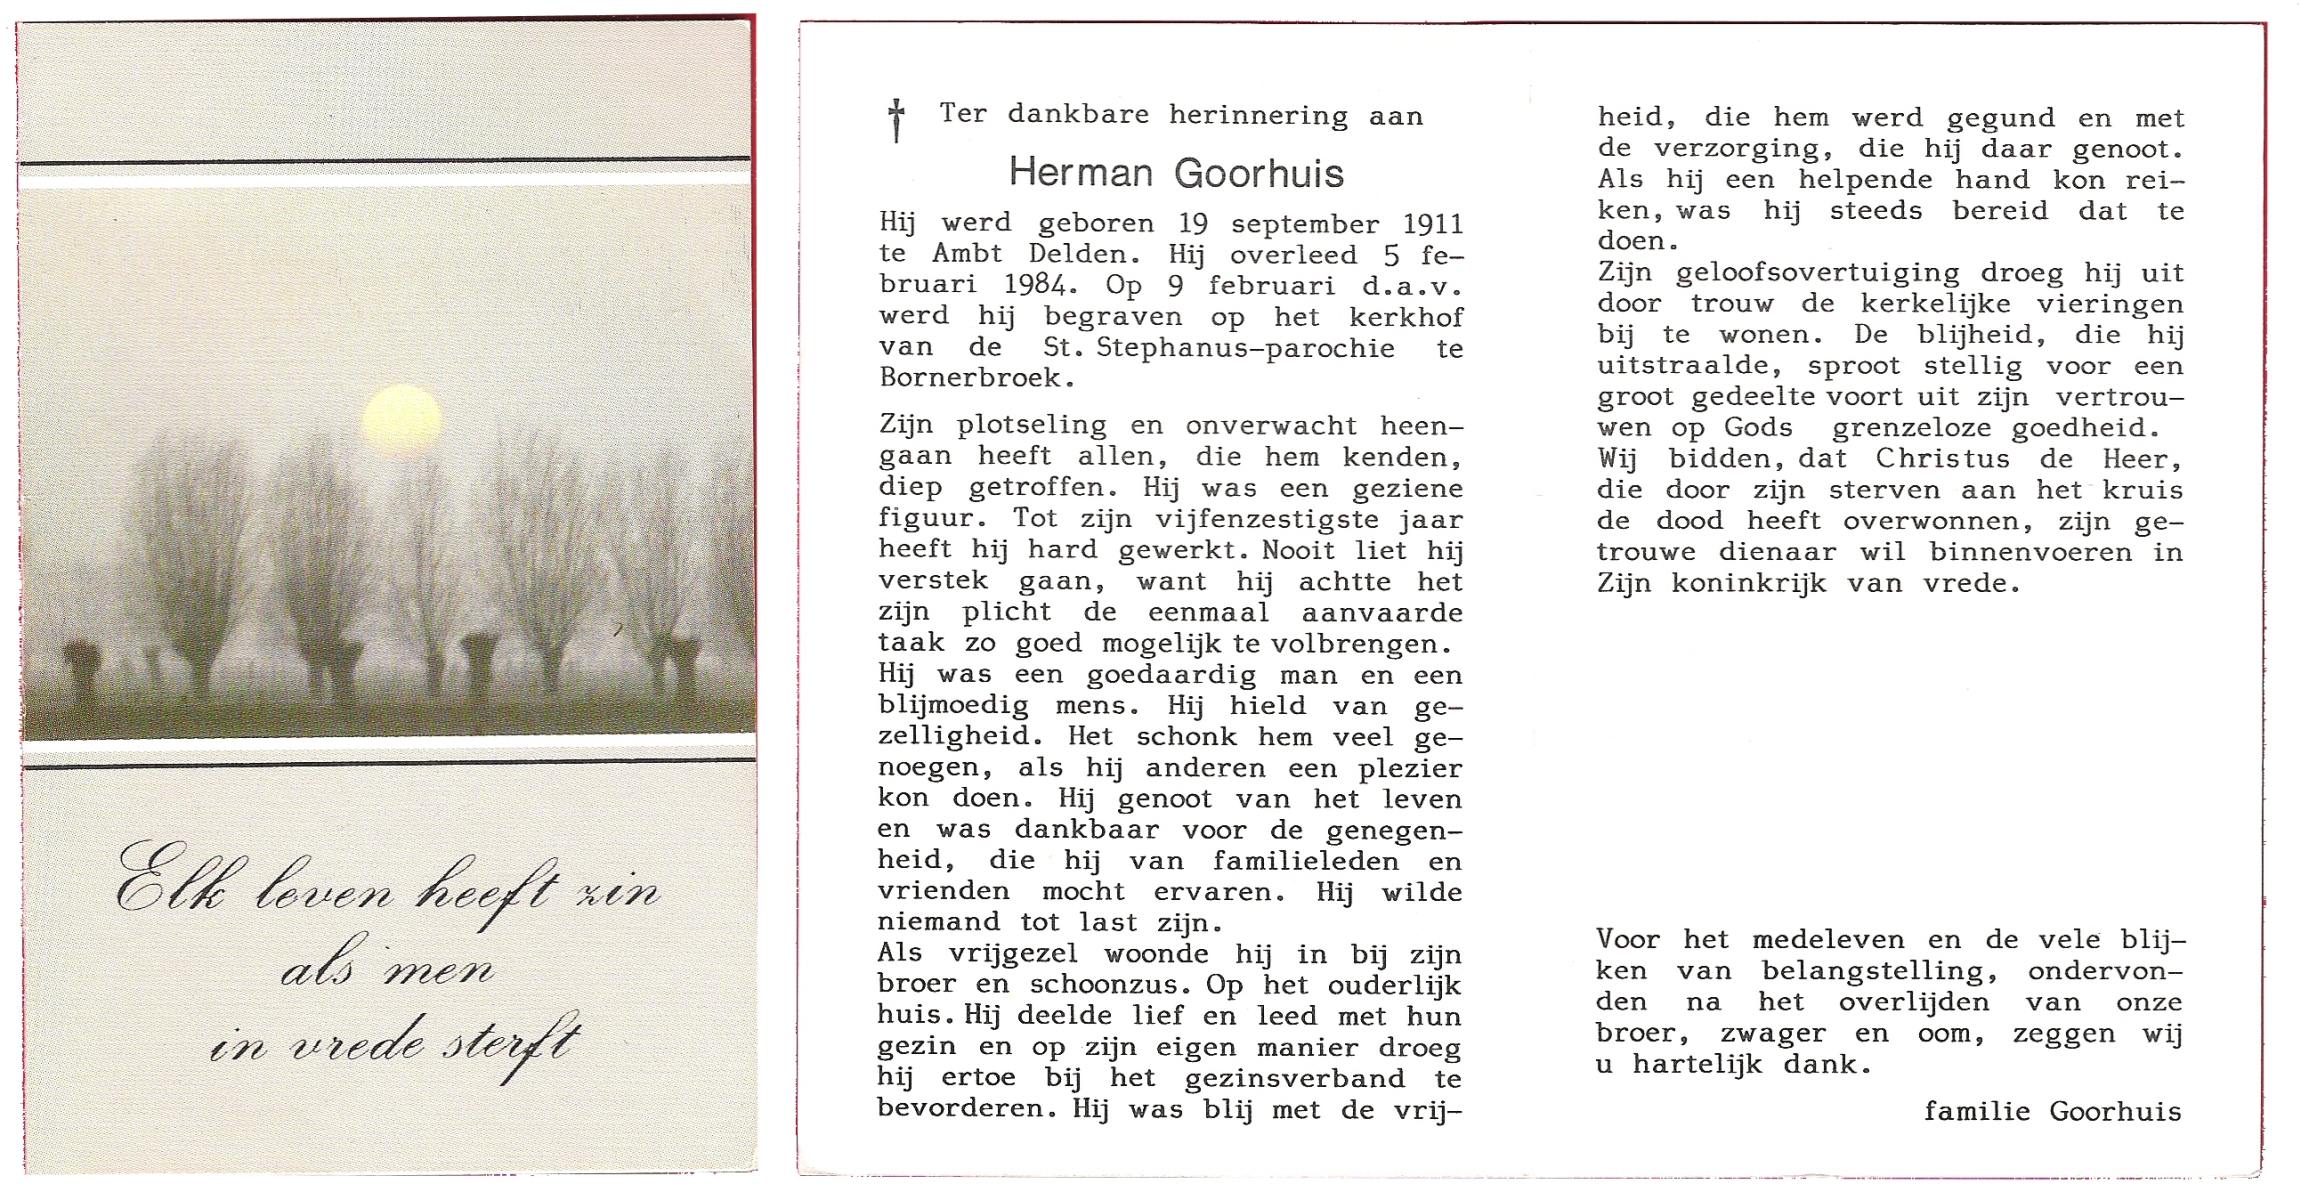 Elk leven heeft zin
als men
in vrede sterft
Ter dankbare herinnering aan
Herman Goorhuis
Hij werd geboren 19 september 1911
te Ambt Delden. Hij overleed 5 fe-
bruari 1984. Op 9 februari d.a.v.
werd hij begraven op het kerkhof
van de St. Stephanus-parochie te
Bornerbroek.
Zijn plotseling en onverwacht heen-
gaan heeft allen, die hem kenden,
diep getroffen. Hij was een geziene
figuur. Tot zijn vijfenzestigste jaar
heeft hij hard gewerkt. Nooit liet hij
verstek gaan, want hij achtte het
zijn plicht de eenmaal aanvaarde
taak zo goed mogelijk te volbrengen.
Hij was een goedaardig man en een
blijmoedig mens. Hij hield van ge-
zelligheid. Het schonk hem veel ge-
noegen, als hij anderen een plezier
kon doen. Hij genoot van het leven
en was dankbaar voor de genegen-
heid, die hij van familieleden en
vrienden mocht ervaren. Hij wilde
niemand tot last zijn.
Als vrijgezel woonde hij in bij zijn
broer en schoonzus. Op het ouderlijk
huis. Hij deelde lief en leed met hun
gezin en op zijn eigen manier droeg
hij ertoe bij het gezinsverband te
bevorderen. Hij was blij met de vrij-
heid, die hem werd gegund en met
de verzorging, die hij daar genoot.
Als hij een helpende hand kon rei-
ken, was hij steeds bereid dat te
doen.
Zijn geloofsovertuiging droeg hij uit
door trouw de kerkelijke vieringen
bij te wonen. De blijheid, die hij
uitstraalde, sproot stellig voor een
groot gedeelte voort uit zijn vertrou-
wen op Gods grenzeloze goedheid.
Wij bidden, dat Christus de Heer,
die door zijn sterven aan het kruis
de dood heeft overwonnen, zijn ge-
trouwe dienaar wil binnenvoeren in
Zijn koninkrijk van vrede.
Voor het medeleven en de vele blij-
ken van belangstelling, ondervon-
den na het overlijden van onze
broer, zwager en oom, zeggen wij
u hartelijk dank.
familie Goorhuis